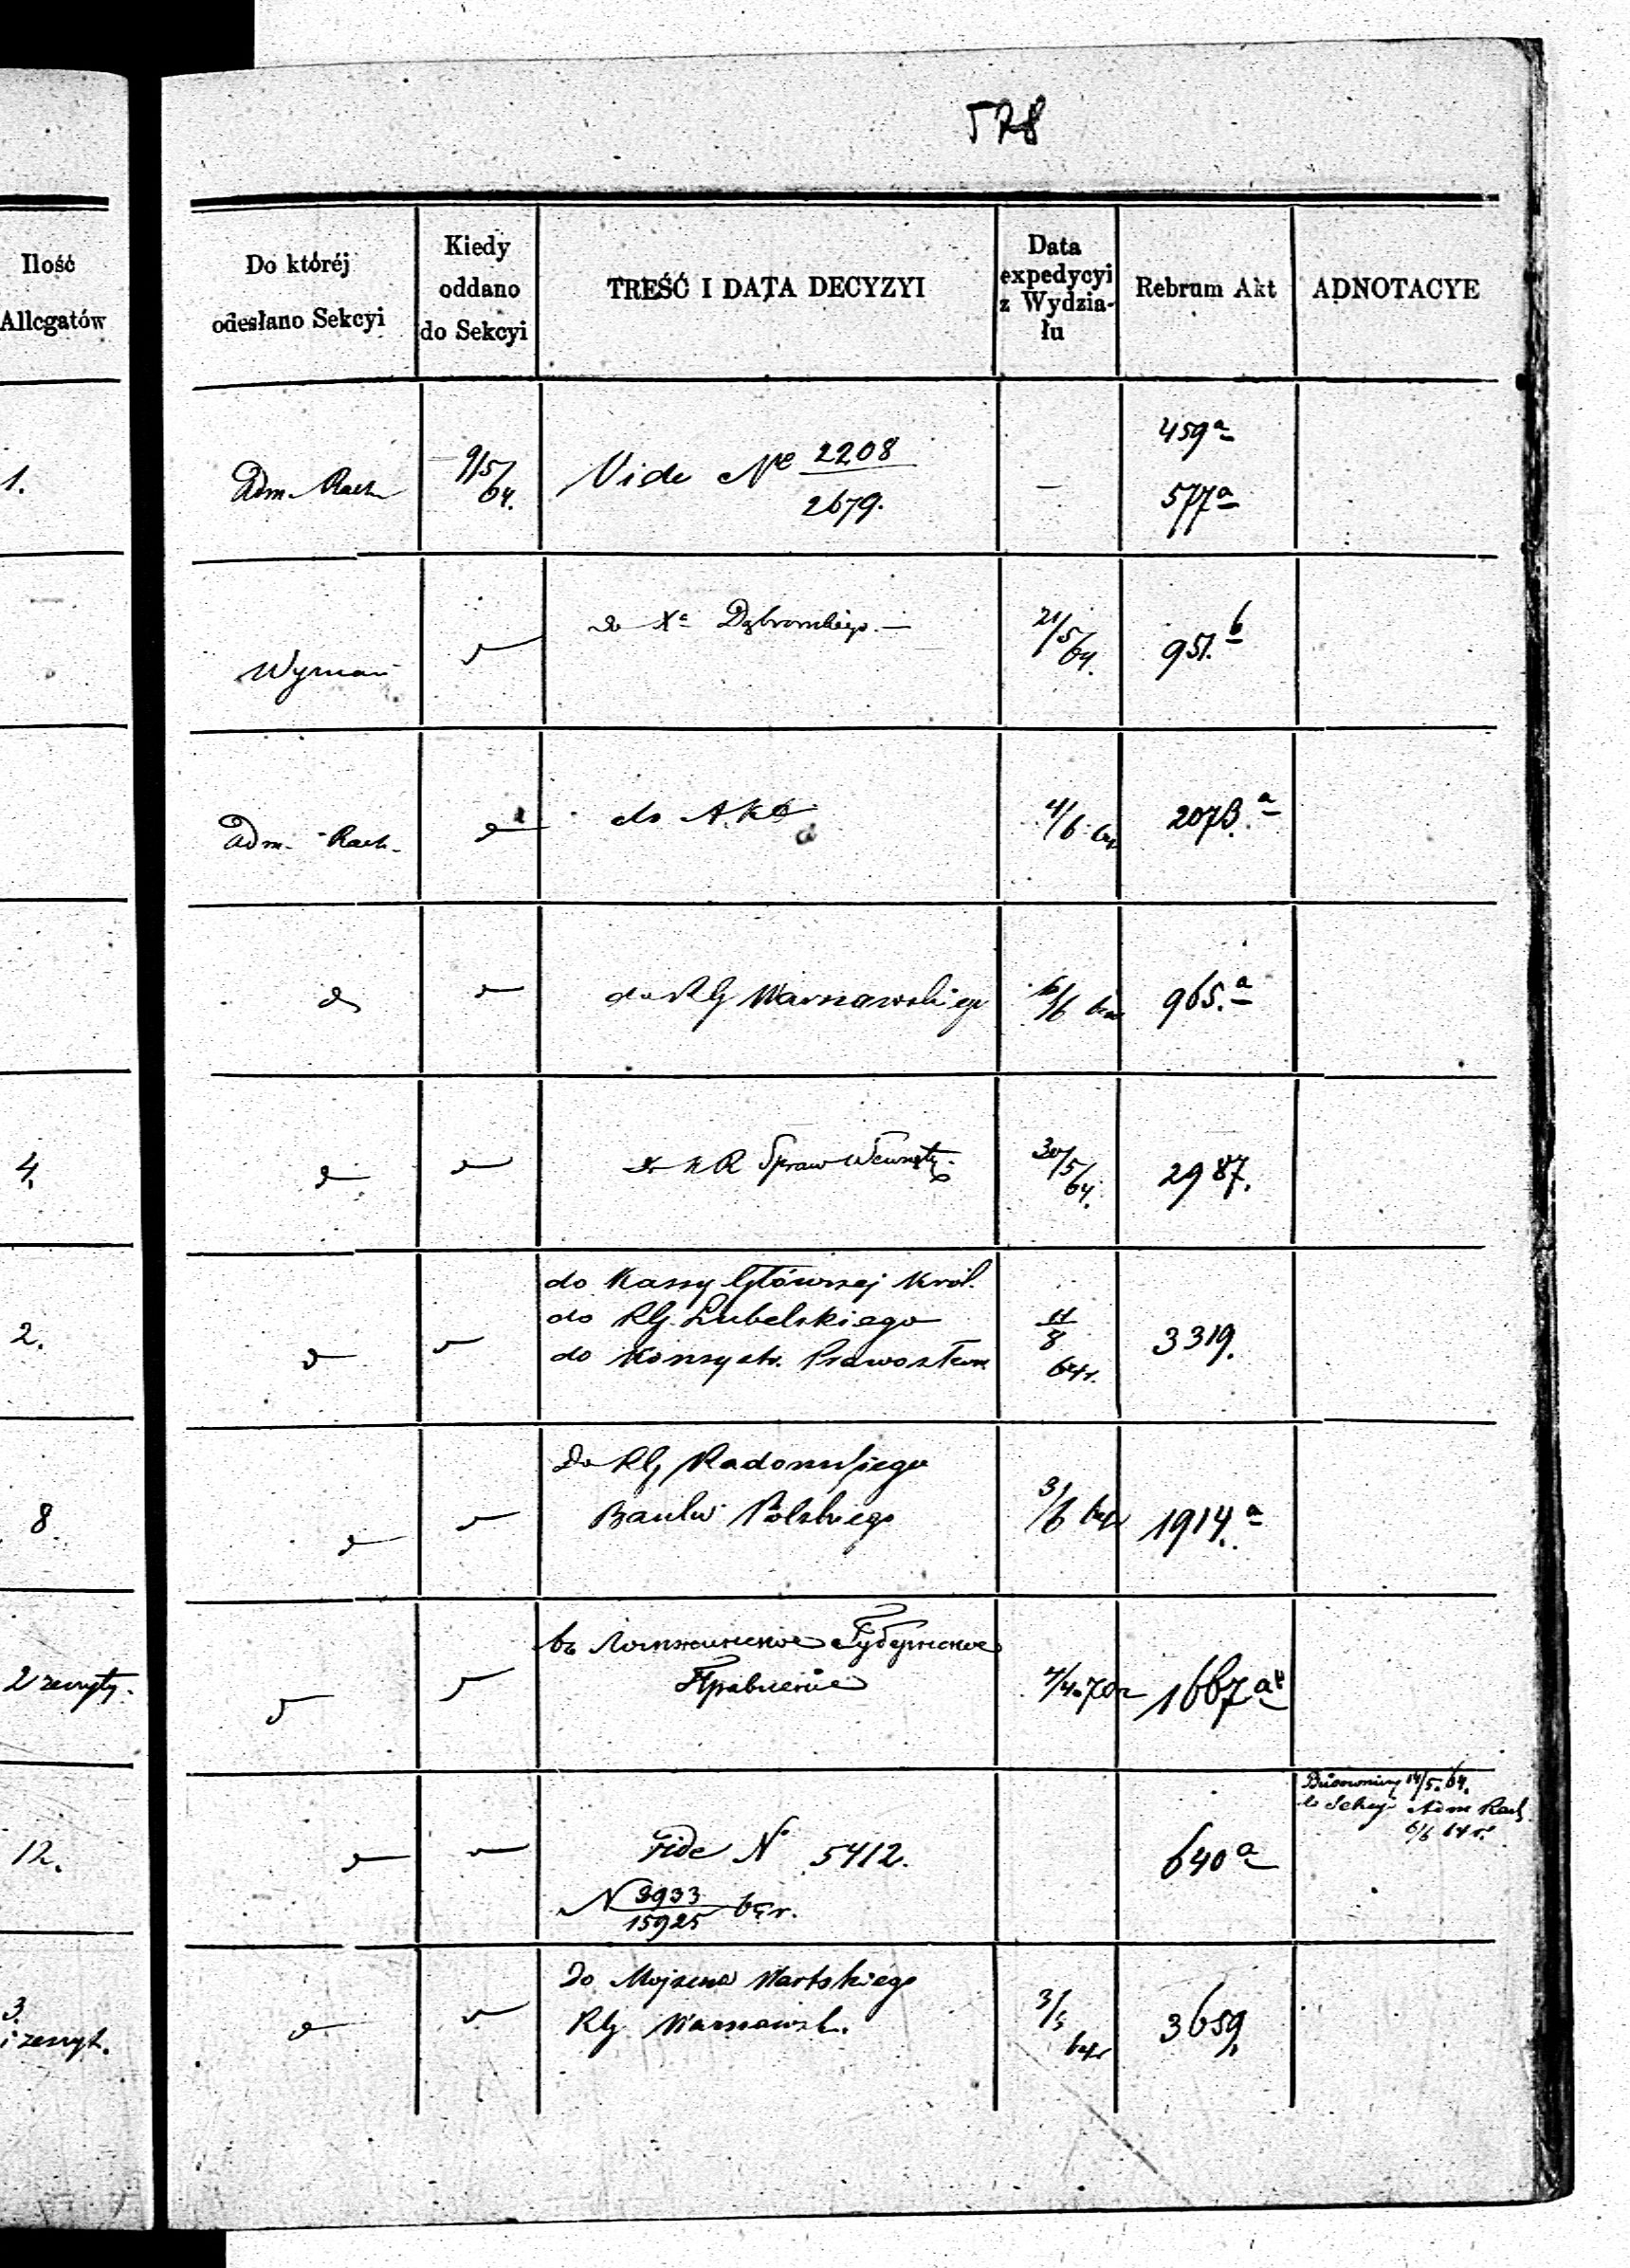 578
Ilość
Allegatów
Do któréj
odesłano Sekcyi
Kiedy
oddano
do Sekcyi
TREŚĆ I DATA DECYZYI
Data
expedycyi
z Wydzia-
łu
Rebrum Akt
ADNOTACYE
1.
Adm. Rach
9/5/64.
Vide № 2208/2679.
—
459 a
577 a
Wyznań
do Xa Dąbrowskiego. —
21/5/64.
951. b
Adm. Rach.
do Akt
4/6 64r
2073. a
do RG Warszawskiego
965. a
4.
do KR Spraw Wewnętrz.
30/5/64.
2987.
2.
do Kassy Głównej Król.
do RG. Lubelskiego
do Konsystr. Prawosław
11/8
64r.
3319.
8.
Do RG Radomskiego
Banku Polskiego
3/6 64r
1914. a
2 zeszyty.
въ Ломжинское Губернское
Правленіе
4/4. 70r
1667 a
12.
Vide N 5412.
N 3933/15925 65r.
640 a
14/5. 64.
do Sekcyi Adm Rach
6/6 64 r.
3.
i zeszyt.
Do Mojzesza Wartskiego
RG Warszawsk.
3/5
64r
3659.